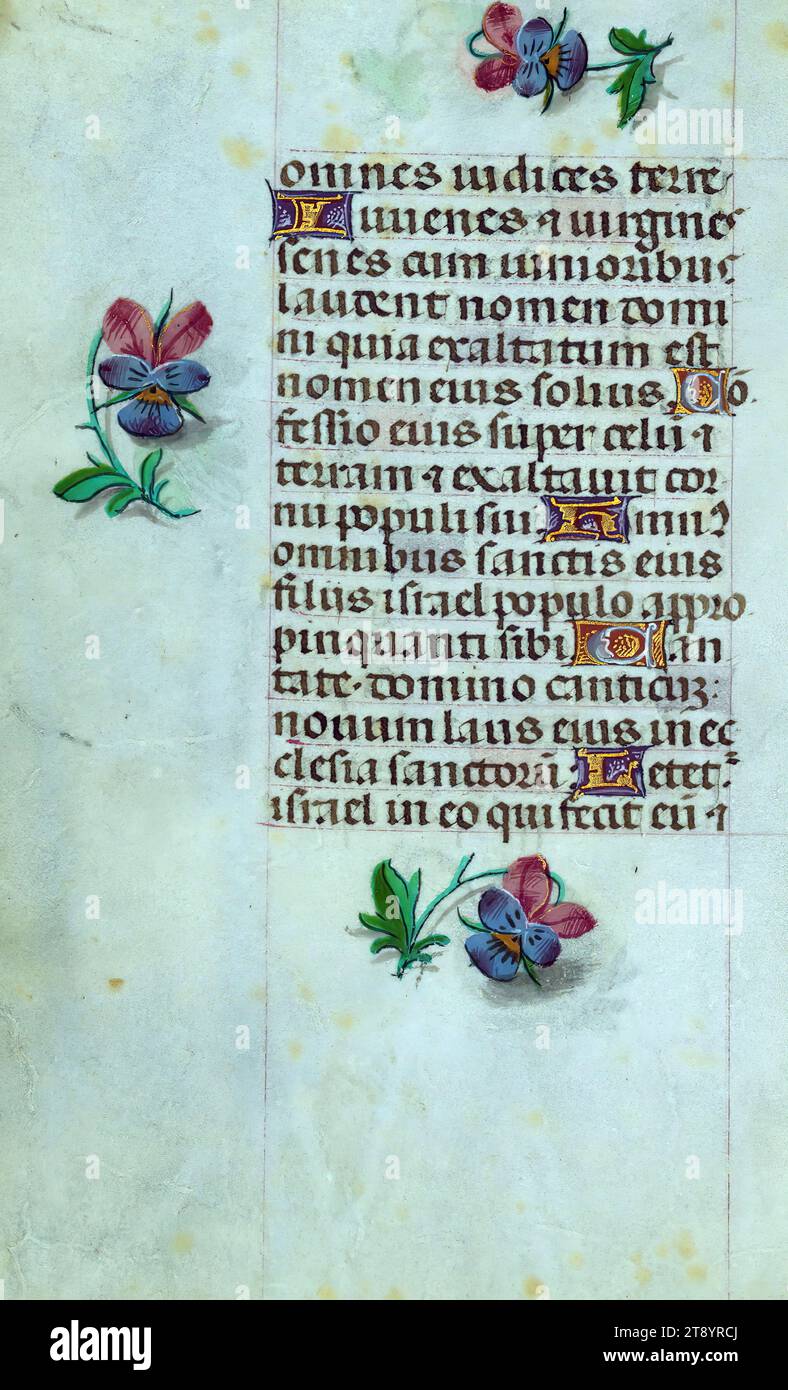 omnes iudices terre
Iuuenes ⁊ uirgines
senes cum iunioribus
laudent nomen domi
ni quia exaltatum est
nomen eius solius. Cō
fessio eius super celū ⁊
terram ⁊ exaltauit cor
nu populi sui. Himnꝰ
omnibus sanctis eius
filiis israel populo appro
pinquanti sibi Can
tate domino canticuꝫ
nouum laus eius in ec
clesia sanctorū. Letet᷑
israel in eo qui fecit eū ⁊
alamy
Image ID: 2T8YRCJ
www.alamy.com